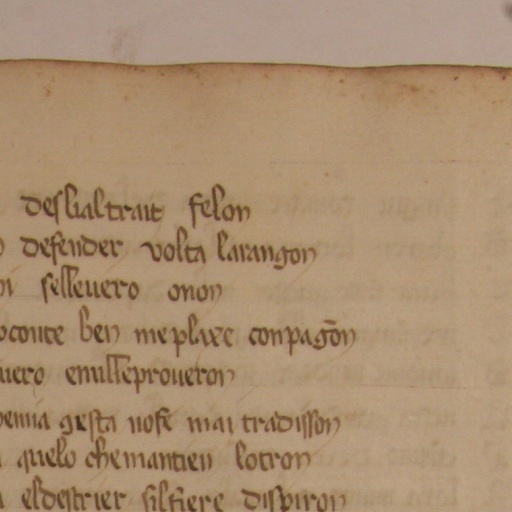 deslial trait felon
defender volta larangon
selleuero onon
conte ben me plaxe conpagōn
uero enulle proueron
gesta nose mai tradisson
quelo che mantien lotron
eldestrier sil fiere dispiron